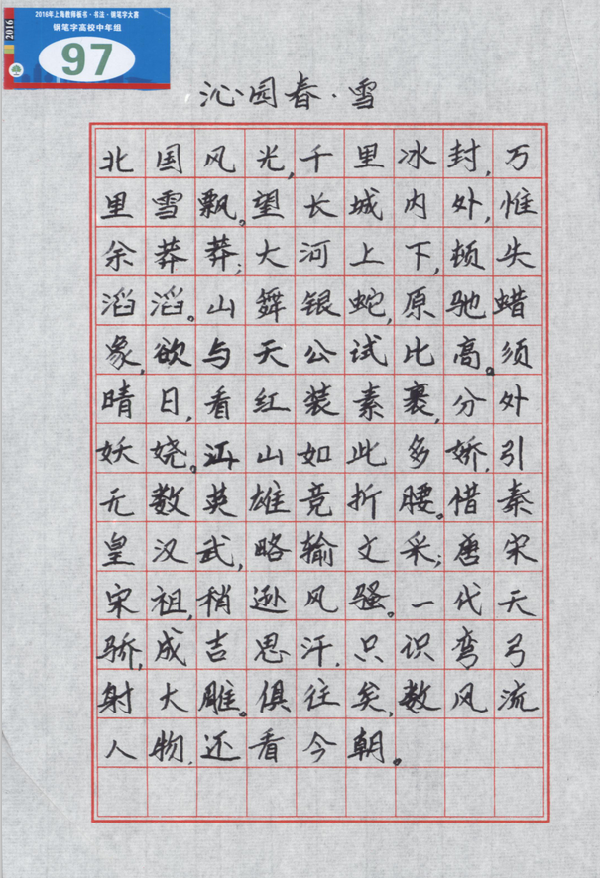 2016年上海教师板书·书法·钢笔字大赛
2016
钢笔字高校中年组
97
沁园春·雪
北国风光,千里冰封,万
里雪飘。望长城内外,惟
余莽莽;大河上下,顿失
滔滔。山舞银蛇,原驰蜡
象,欲与天公试比高。须
晴日,看红装素裹,分外
妖娆。江山如此多娇,引
无数英雄竞折腰。惜秦
皇汉武,略输文采;唐宋
宋祖,稍逊风骚。一代天
骄,成吉思汗,只识弯弓
射大雕。俱往矣,数风流
人物,还看今朝。